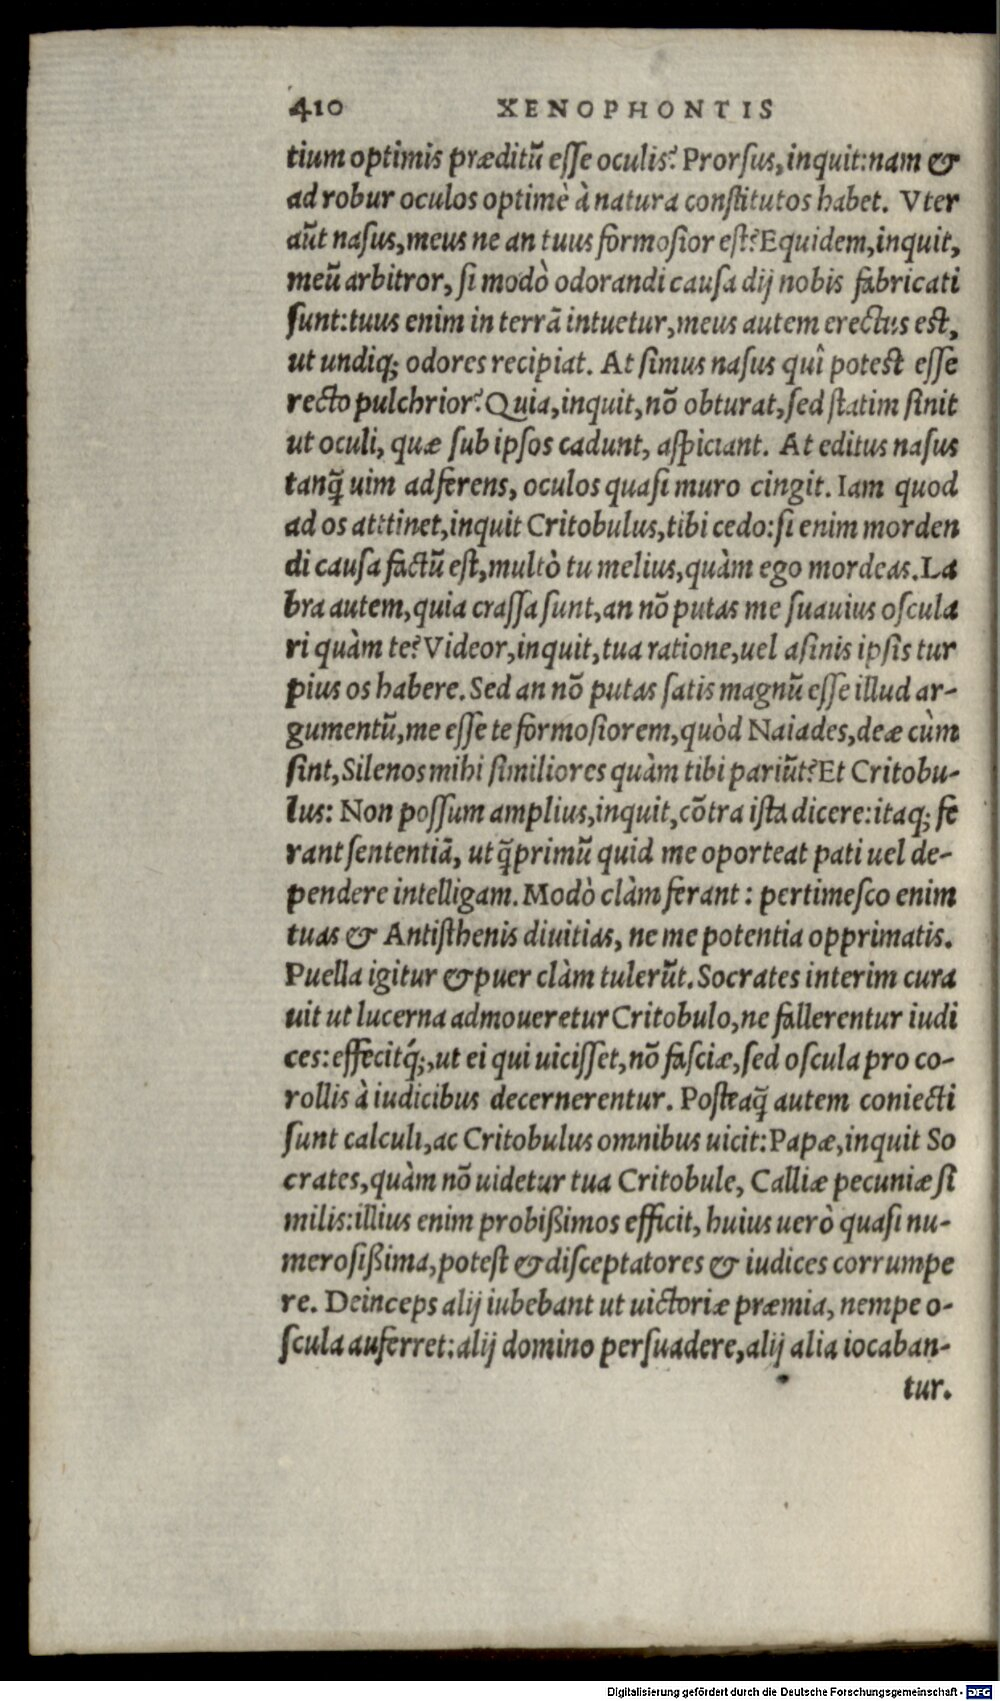 410 XENOPHONTIS
tium optimis præditũ eſſe oculis? Prorſus, inquit: nam &
ad robur oculos optimè à natura conſtitutos habet. Vter
aũt naſus, meus ne an tuus formoſior eſt? Equidem, inquit,
meũ arbitror, ſi modò odorandi cauſa dij nobis fabricati
ſunt: tuus enim in terrã intuetur, meus autem erectus est,
ut undiq; odores recipiat. At ſimus naſus quî potest eſſe
recto pulchrior? Quia, inquit, nõ obturat, ſed ſtatim ſinit
ut oculi, quæ ſub ipſos cadunt, aſpiciant. At editus naſus
tanq̃ uim adferens, oculos quaſi muro cingit. Iam quod
ad os attinet, inquit Critobulus, tibi cedo: ſi enim morden
di cauſa factũ eſt, multò tu melius, quàm ego mordeas. La
bra autem, quia craſſa ſunt, an nõ putas me ſuauius oſcula
ri quàm te? Videor, inquit, tua ratione, uel aſinis ipſis tur
pius os habere. Sed an nõ putas ſatis magnũ eſſe illud ar-
gumentũ, me eſſe te formoſiorem, quòd Naiades, deæ cùm
ſint, Silenos mihi ſimiliores quàm tibi pariũt? Et Critobu-
lus: Non poſſum amplius, inquit, cõtra iſta dicere: itaq; fe
rant ſententiã, ut q̃primũ quid me oporteat pati uel de-
pendere intelligam. Modò clàm ferant: pertimeſco enim
tuas & Antiſthenis diuitias, ne me potentia opprimatis.
Puella igitur & puer clàm tulerũt. Socrates interim cura
uit ut lucerna admoueretur Critobulo, ne fallerentur iudi
ces: effecitq́;, ut ei qui uiciſſet, nõ faſciæ, ſed oſcula pro co-
rollis à iudicibus decernerentur. Poſteaq̃ autem coniecti
ſunt calculi, ac Critobulus omnibus uicit: Papæ, inquit So
crates, quàm nõ uidetur tua Critobule, Calliæ pecuniæ ſi
milis: illius enim probißimos efficit, huius uerò quaſi nu-
meroſißima, potest & diſceptatores & iudices corrumpe
re. Deinceps alij iubebant ut uictoriæ præmia, nempe o-
ſcula auferret: alij domino perſuadere, alij alia iocaban-
tur.
Digitalisierung gefördert durch die Deutsche Forschungsgemeinschaft - DFG